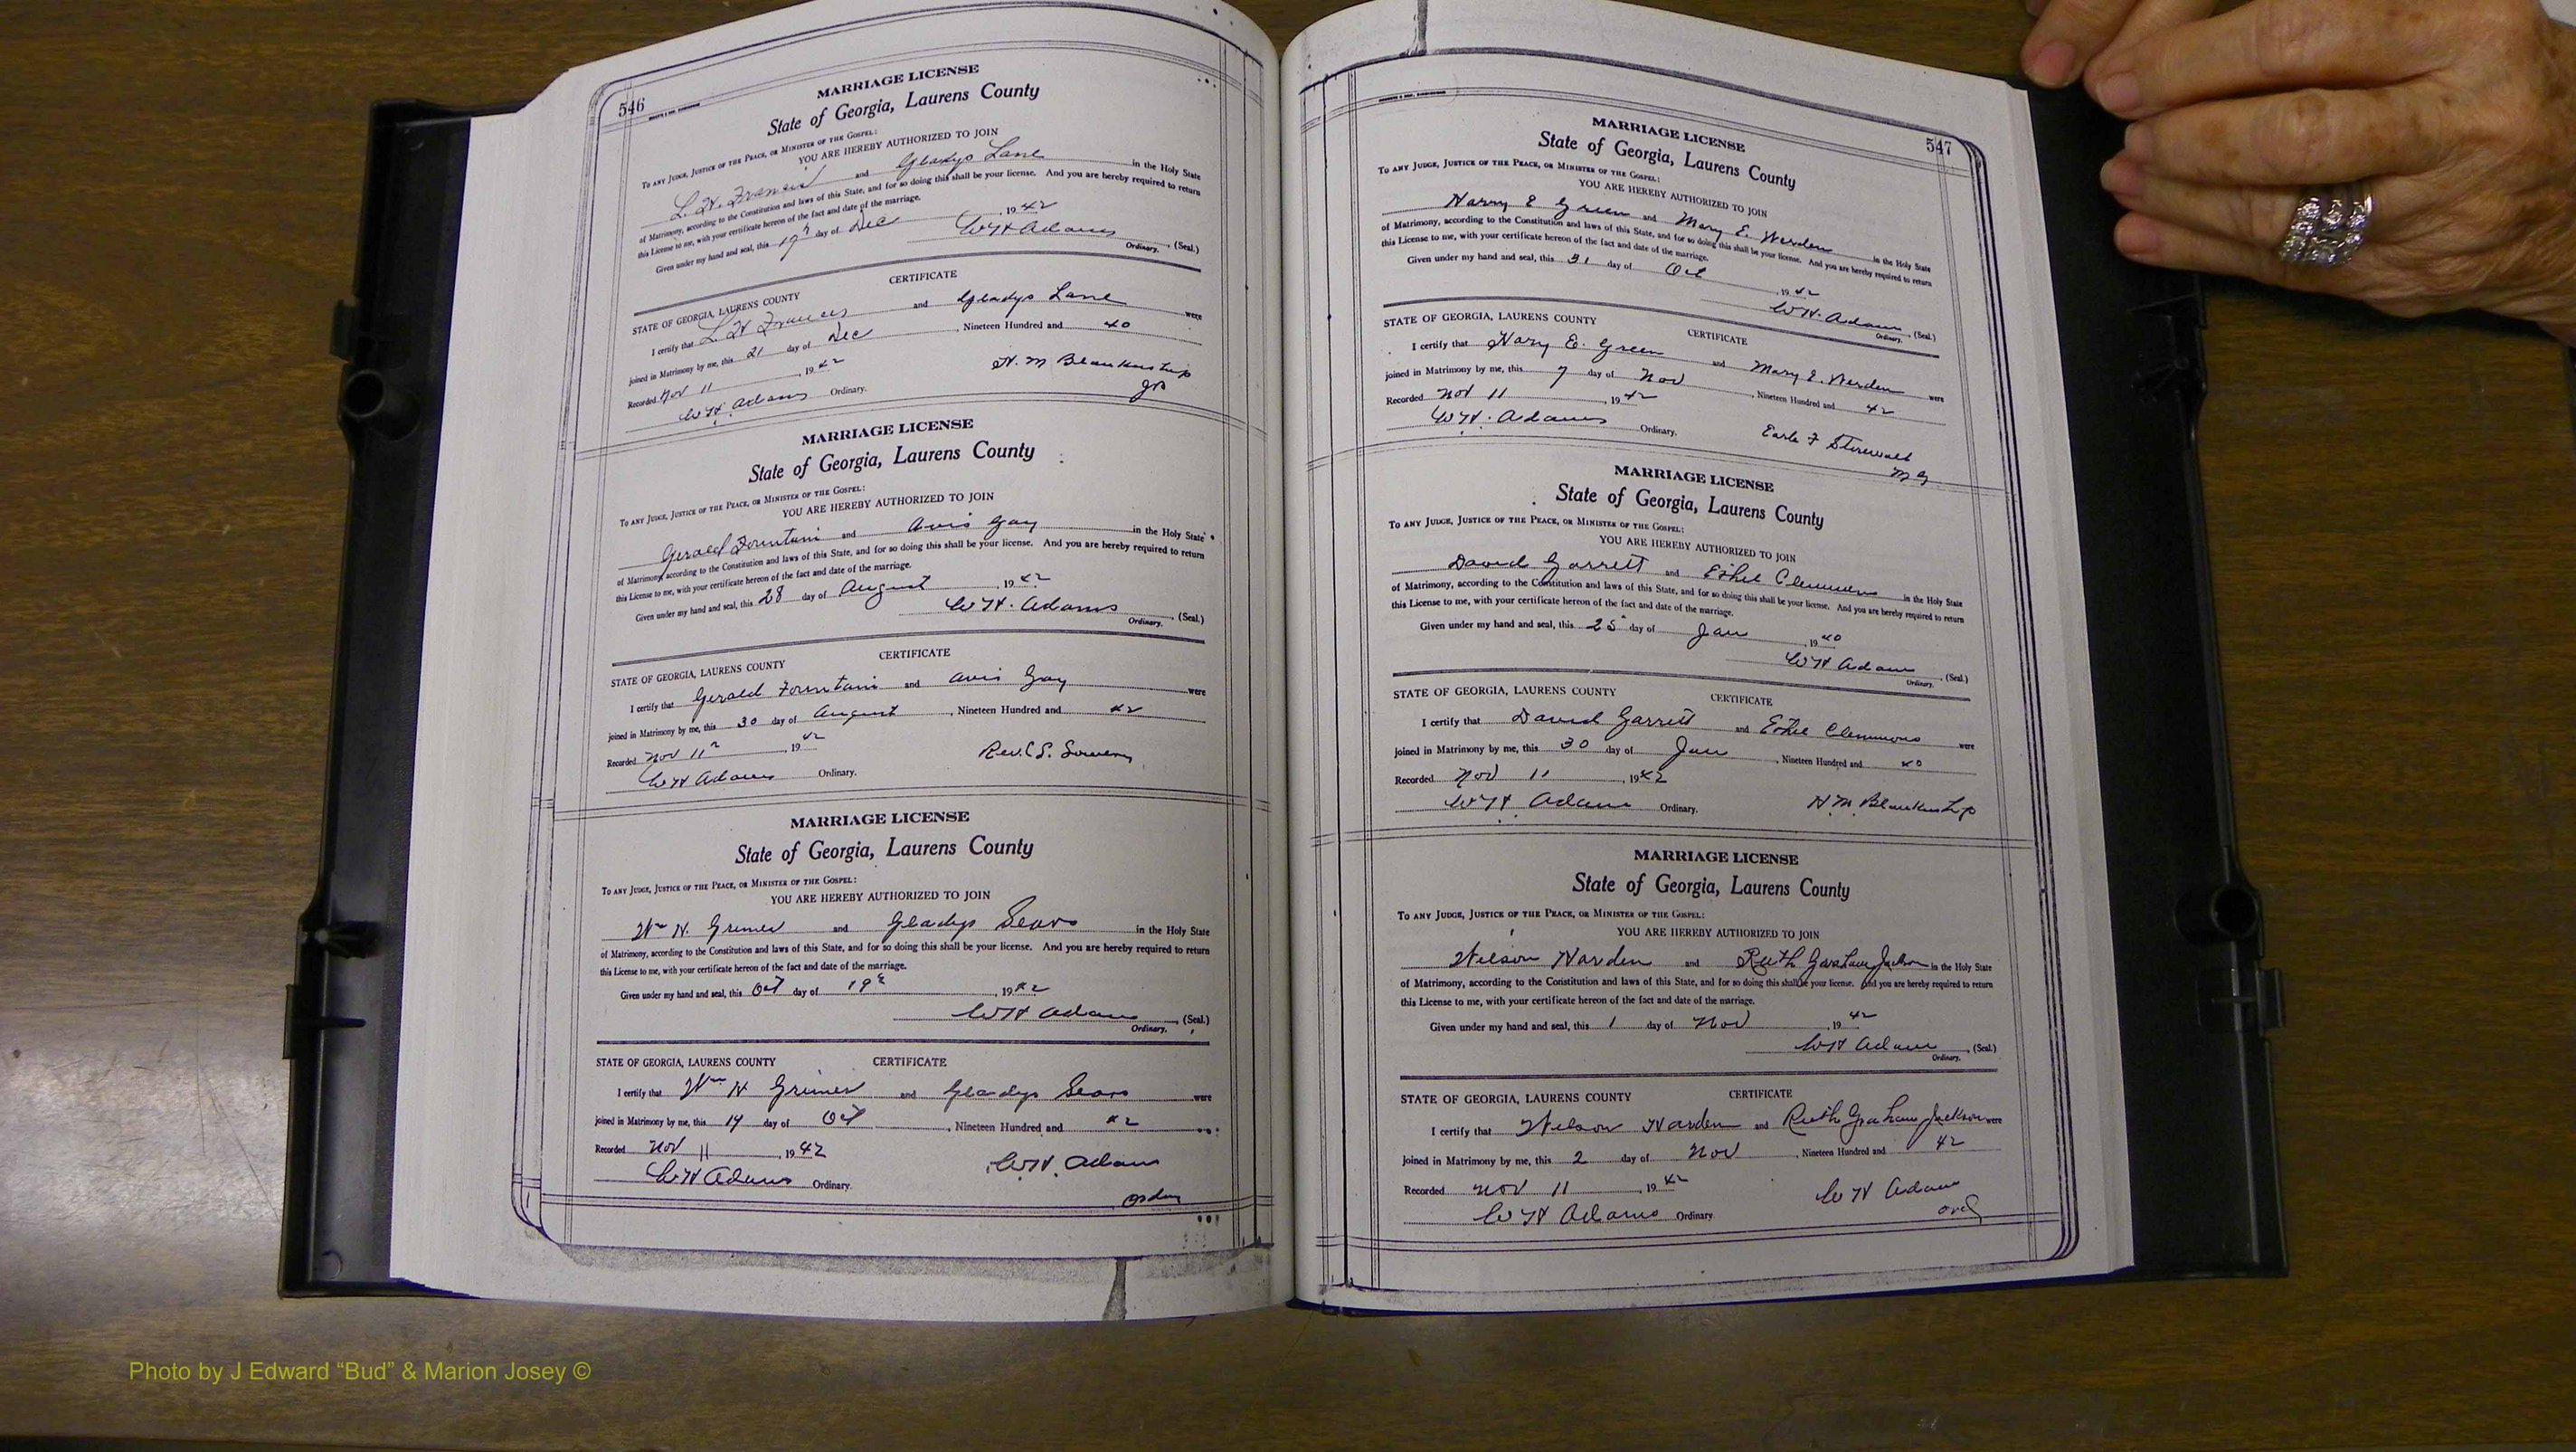 546
MARRIAGE LICENSE
State of Georgia, Laurens County
To any Judge, Justice of the Peace, or Minister of the Gospel:
YOU ARE HEREBY AUTHORIZED TO JOIN
L. H. Francis and Gladys Lane in the Holy State
of Matrimony, according to the Constitution and laws of this State, and for so doing this shall be your license. And you are hereby required to return
this License to me, with your certificate hereon of the fact and date of the marriage.
Given under my hand and seal, this 19th day of Dec, 1942
W H Adams, (Seal.)
Ordinary.
CERTIFICATE
STATE OF GEORGIA, LAURENS COUNTY
I certify that L H Frances and Gladys Lane were
joined in Matrimony by me, this 21 day of Dec, Nineteen Hundred and 40
Recorded Nov 11, 1942 H. M Blankenship
W H Adams Ordinary.
MARRIAGE LICENSE
State of Georgia, Laurens County
To any Judge, Justice of the Peace, or Minister of the Gospel:
YOU ARE HEREBY AUTHORIZED TO JOIN
Gerald Fountain and Avis Gay in the Holy State
of Matrimony, according to the Constitution and laws of this State, and for so doing this shall be your license. And you are hereby required to return
this License to me, with your certificate hereon of the fact and date of the marriage.
Given under my hand and seal, this 28 day of August, 1942
W H. Adams, (Seal.)
Ordinary.
CERTIFICATE
STATE OF GEORGIA, LAURENS COUNTY
I certify that Gerald Fountain and Avis Gay were
joined in Matrimony by me, this 30 day of August, Nineteen Hundred and 42
Recorded Nov 11, 1942 Rev.
W H Adams Ordinary.
MARRIAGE LICENSE
State of Georgia, Laurens County
To any Judge, Justice of the Peace, or Minister of the Gospel:
YOU ARE HEREBY AUTHORIZED TO JOIN
Wm H. Grimes and Gladys Sears in the Holy State
of Matrimony, according to the Constitution and laws of this State, and for so doing this shall be your license. And you are hereby required to return
this License to me, with your certificate hereon of the fact and date of the marriage.
Given under my hand and seal, this Oct day of 19, 1942
W H Adams, (Seal.)
Ordinary.
STATE OF GEORGIA, LAURENS COUNTY CERTIFICATE
I certify that Wm H Grimes and Gladys Sears were
joined in Matrimony by me, this 19 day of Oct, Nineteen Hundred and 42
Recorded Nov 11, 1942 W. H. Adams
W H Adams Ordinary.
Ordny
547
MARRIAGE LICENSE
State of Georgia, Laurens County
To any Judge, Justice of the Peace, or Minister of the Gospel:
YOU ARE HEREBY AUTHORIZED TO JOIN
Harry E Green and Mary E. Werden in the Holy State
of Matrimony, according to the Constitution and laws of this State, and for so doing this shall be your license. And you are hereby required to return
this License to me, with your certificate hereon of the fact and date of the marriage.
Given under my hand and seal, this 31 day of Oct, 1942
W H. Adams, (Seal.)
Ordinary.
STATE OF GEORGIA, LAURENS COUNTY CERTIFICATE
I certify that Harry E. Green and Mary E. Werden were
joined in Matrimony by me, this 7 day of Nov, Nineteen Hundred and 42
Recorded Nov 11, 1942
W H. Adams Ordinary. Earle F
M G
MARRIAGE LICENSE
State of Georgia, Laurens County
To any Judge, Justice of the Peace, or Minister of the Gospel:
YOU ARE HEREBY AUTHORIZED TO JOIN
David Garrett and Ethel Clemmons in the Holy State
of Matrimony, according to the Constitution and laws of this State, and for so doing this shall be your license. And you are hereby required to return
this License to me, with your certificate hereon of the fact and date of the marriage.
Given under my hand and seal, this 25 day of Jan, 1940
W H Adams, (Seal.)
Ordinary.
STATE OF GEORGIA, LAURENS COUNTY CERTIFICATE
I certify that David Garrett and Ethel Clemmons were
joined in Matrimony by me, this 30 day of Jan, Nineteen Hundred and 40
Recorded Nov 11, 1942
W H Adams Ordinary. H M. Blankenship
MARRIAGE LICENSE
State of Georgia, Laurens County
To any Judge, Justice of the Peace, or Minister of the Gospel:
YOU ARE HEREBY AUTHORIZED TO JOIN
Wilson Harden and Ruth Graham Jackson in the Holy State
of Matrimony, according to the Constitution and laws of this State, and for so doing this shall be your license. And you are hereby required to return
this License to me, with your certificate hereon of the fact and date of the marriage.
Given under my hand and seal, this 1 day of Nov, 1942
W H Adams, (Seal.)
Ordinary.
STATE OF GEORGIA, LAURENS COUNTY CERTIFICATE
I certify that Wilson Harden and Ruth Graham Jackson were
joined in Matrimony by me, this 2 day of Nov, Nineteen Hundred and 42
Recorded Nov 11, 1942 W H Adams
W H Adams Ordinary. ord
Photo by J Edward “Bud” & Marion Josey ©